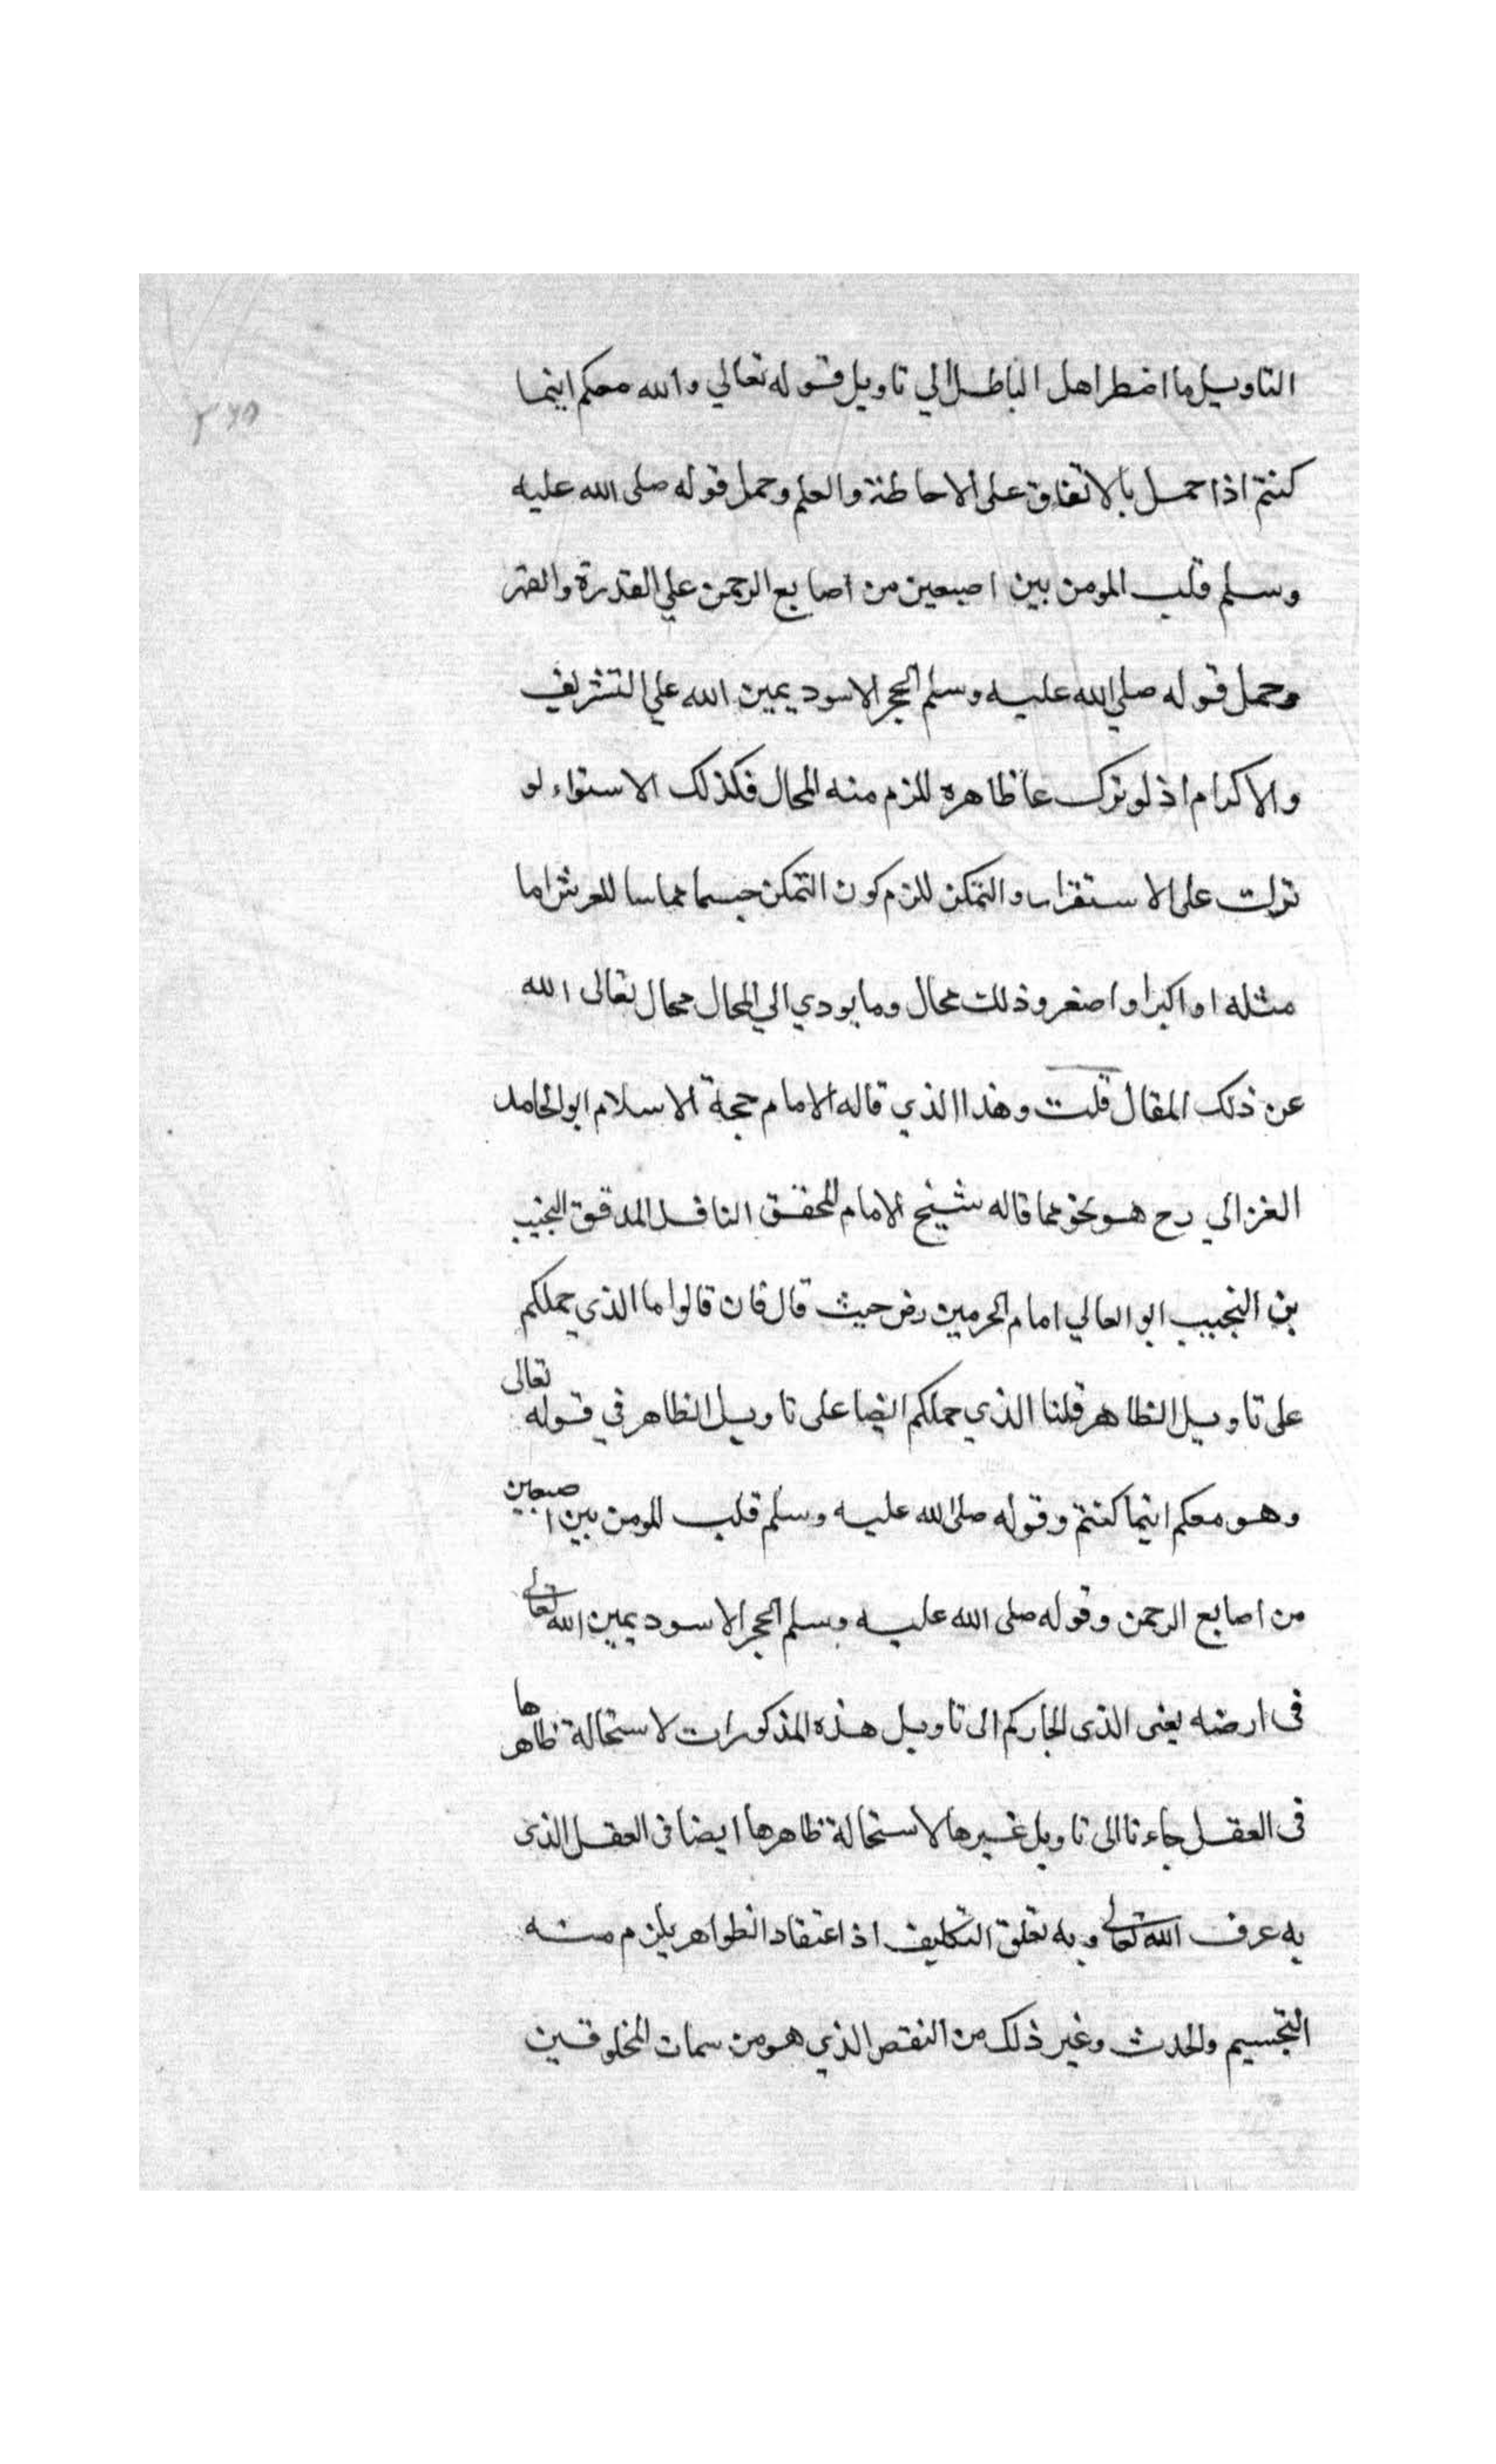 التاويل ما اضطر اهل الباطل الي تاويل قوله تعالي والله معكم اينما
كنتم اذا حمل بالاتفاق على الاحاطة والعلم وحمل قوله صلى الله عليه
وسلم قلب المومن بين اصبعين من اصابع الرحمن علي القدرة والقهر
وحمل قوله صلي الله عليه وسلم الحجر الاسود يمين الله علي التشريف
والاكرام اذ لو ترك عا ظاهره للزم منه المحال فكذلك الاستواء لو
ترك على الاستقرار والتمكن للزم كون التمكن جسما مماسا للعرش اما
مثله او اكبر او اصغر وذلك محال وما يودي الي المحال محال تعالى الله
عن ذلك المقال قلت وهذا الذي قاله الامام حجة الاسلام ابو الحامد
الغزالي رح هو نحو مما قاله شيخ الامام المحقق الناقل المدقق النجيب
بن النجيب ابو العالي امام الحرمين رض حيث قال فان قالوا ما الذي حملكم
على تاويل الظاهر قلنا الذي حملكم ايضا على تاويل الظاهر في قوله تعالى
وهو معكم اينما كنتم وقوله صلى الله عليه وسلم قلب المومن بين اصبعين
من اصابع الرحمن وقوله صلى الله عليه وسلم الحجر الاسود يمين الله تعالى
فى ارضه يعنى الذى الجاركم الى تاويل هذه المذكورات لاستحالة ظاهرها
فى العقل جاءنا الى تاويل غيرها لاستحالة ظاهرها ايضا فى العقل الذى
به عرف الله تعالى وبه تعلق التكليف اذ اعتقاد الظواهر يلزم منه
التجسيم والحدث وغير ذلك من النقص الذي هو من سمات المخلوقين